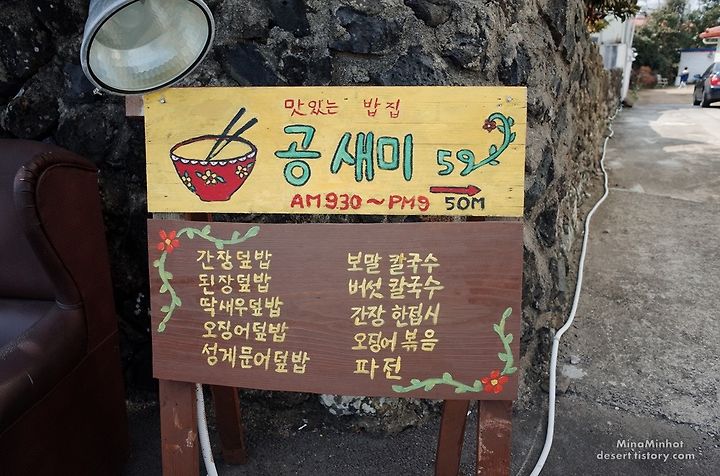 맛있는 밥집
공새미 59
AM930~PM9 50M
간장덮밥
된장덮밥
딱새우덮밥
오징어덮밥
성게문어덮밥
보말 칼국수
버섯 칼국수
간장 한접시
오징어 볶음
파전
MinaMinhot
desert.tistory.com